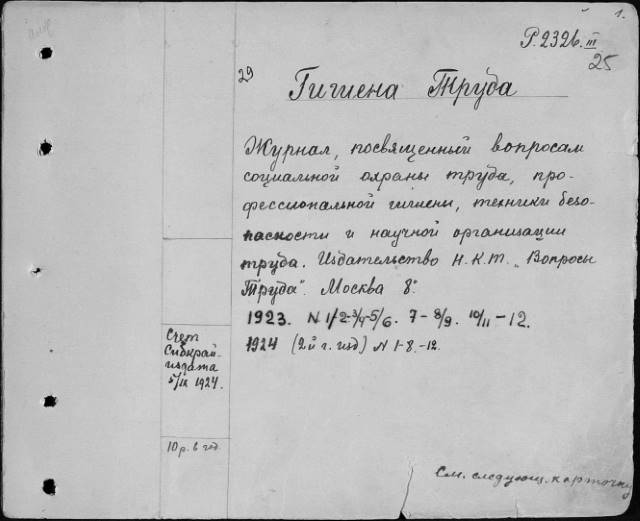 1.
Р. 2326.III
25
29
Гигиена Труда
Журнал, посвященный вопросам
социальной охраны труда, про-
фессиональной гигиены, техники безо-
пасности и научной организации
труда. Издательство Н.К.Т. „Вопросы
Труда". Москва 8°.
1923. N 1/2-3/4-5/6. 7-8/9. 10/11-12.
1924 (2й г. изд) N 1-8.-12.
Счет
Сибкрай-
издата
5/IX 1924.
10 р. в год.
См. следующ. карточку